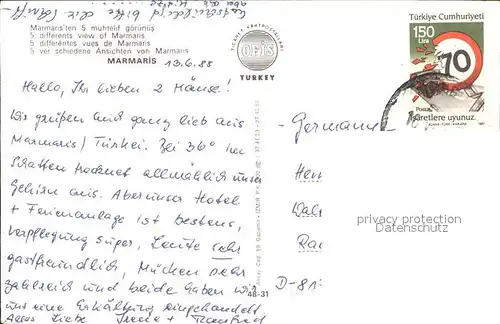 Entschuldigt bitte die Schrift
Marmaris'ten 5 muhtelif görünüş
5 differents view of Marmaris
5 differentes vues de Marmaris
5 ver schiedene Ansichten von Marmaris
MARMARİS
13.6.88
TURKEY
Türkiye Cumhuriyeti
150
Lira
70
işaretlere uyunuz.
Hallo, Ihr lieben 2 Mäuse!
Wir grüßen Euch ganz lieb aus
Marmaris / Türkei. Bei 36° im
Schatten trocknet allmählich unser
Gehirn aus. Aber unser Hotel
+ Ferienanlage ist bestens,
Verpflegung super, Leute sehr
gastfreundlich, Mücken sehr
zahlreich und beide haben wir
uns eine Erkältung eingehandelt
Alles Liebe Irene + Manfred
48-31
Germany
Herr
D-81
privacy protection
Datenschutz